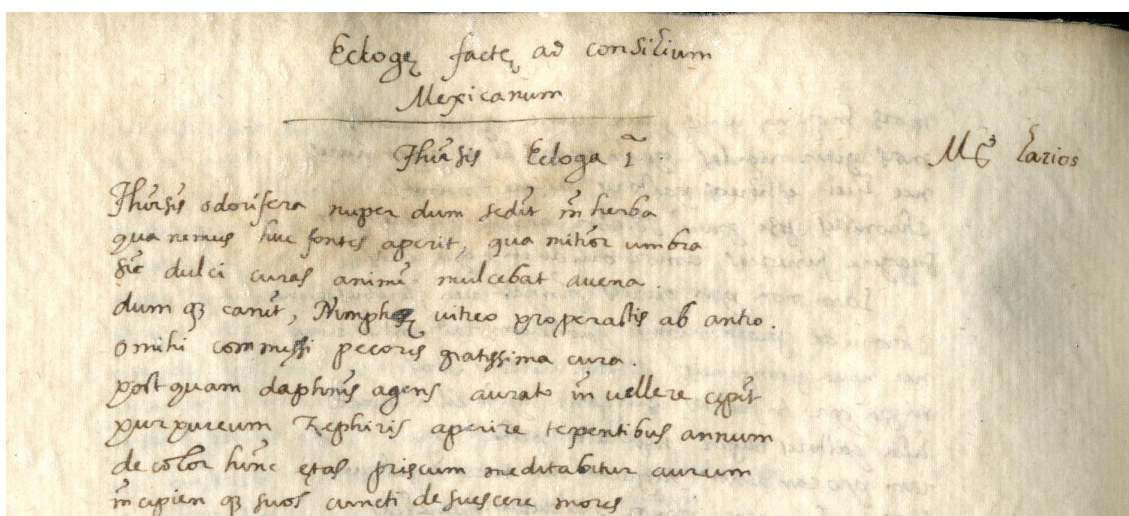 Eclogę factę ad consilium
Mexicanum
Thirsis Ecloga 1ª Mº Larios
Thirsis odorifera nuper dum sedit in herba
qua nemus huc fontes aperit, qua mitior umbra
sic dulci curas animi mulcebat avena
dum qȝ canit, Nimphę vitreo properastis ab antro.
o mihi commissi pecoris gratissima cura.
post quam daphnis agens aurato in vellere cępit
purpureum Zephiris aperire tepentibus annum
de color hinc ętas priscum meditabitur aurum
incipien qȝ suos cuncti desuescere mores